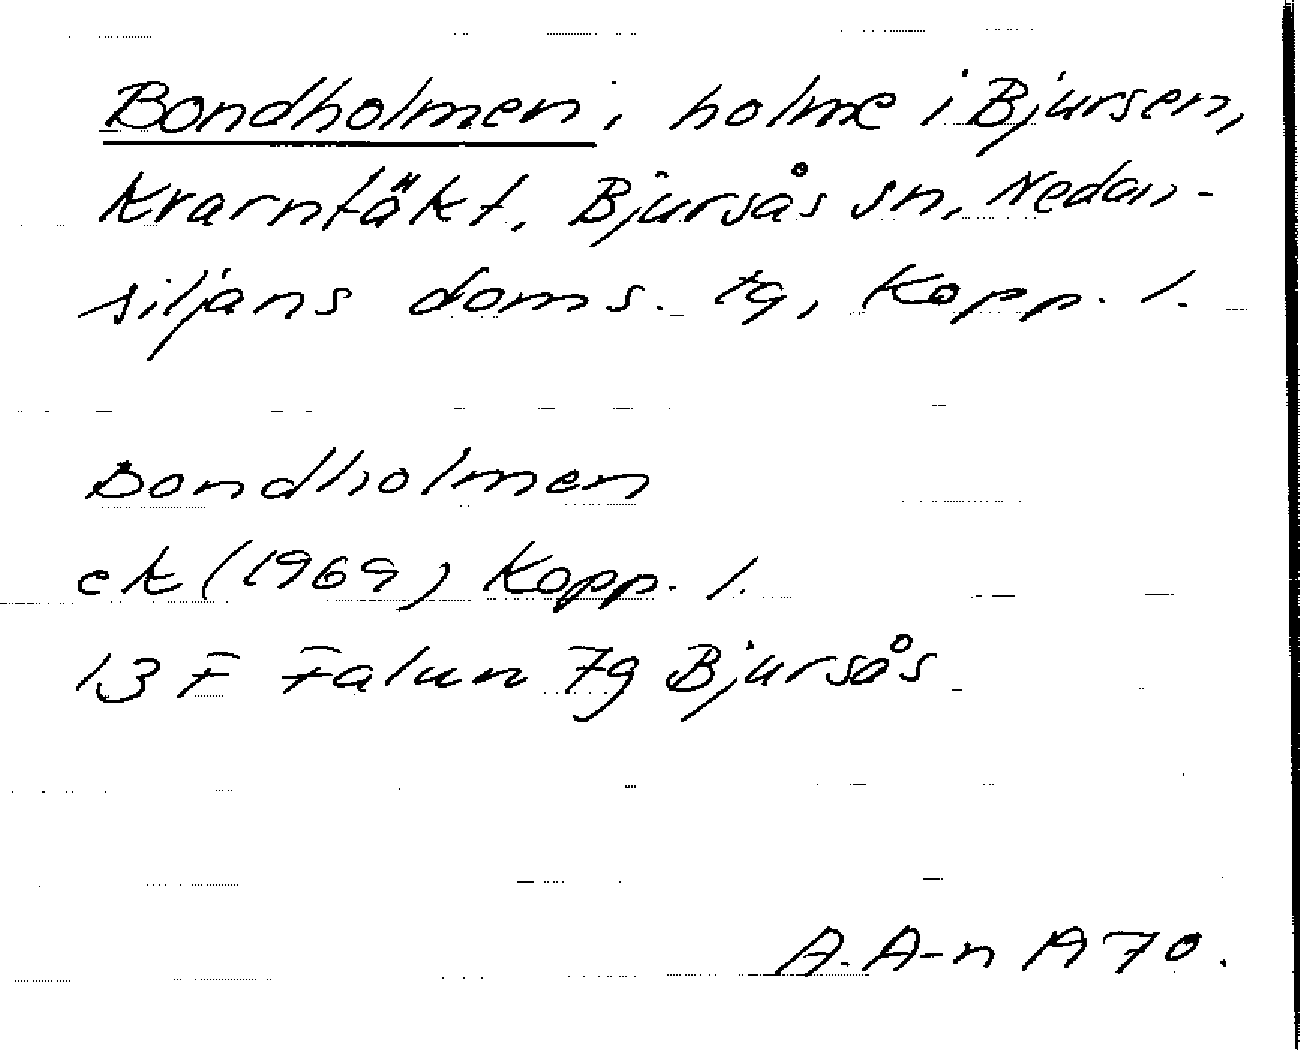 Bondholmen, holme i Bjursen,
Kvarntäkt, Bjursås sn, Nedan-
siljans doms. tg, Kopp. l.
Bondholmen
ek (1969) Kopp. l.
13 F Falun 7g Bjursås
A. A-n 1970.